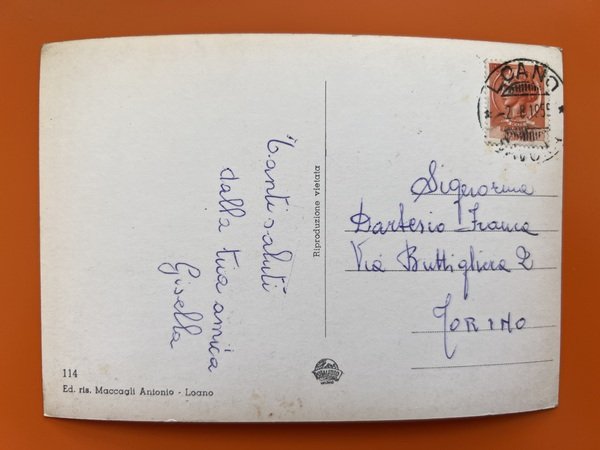 Tanti saluti
dalla tua amica
Gisella
Riproduzione vietata
LOANO
-2.8.1955
Signorina
Dartesio Franca
Via Buttigliera 2
TORINO
114
Ed. ris. Maccagli Antonio - Loano